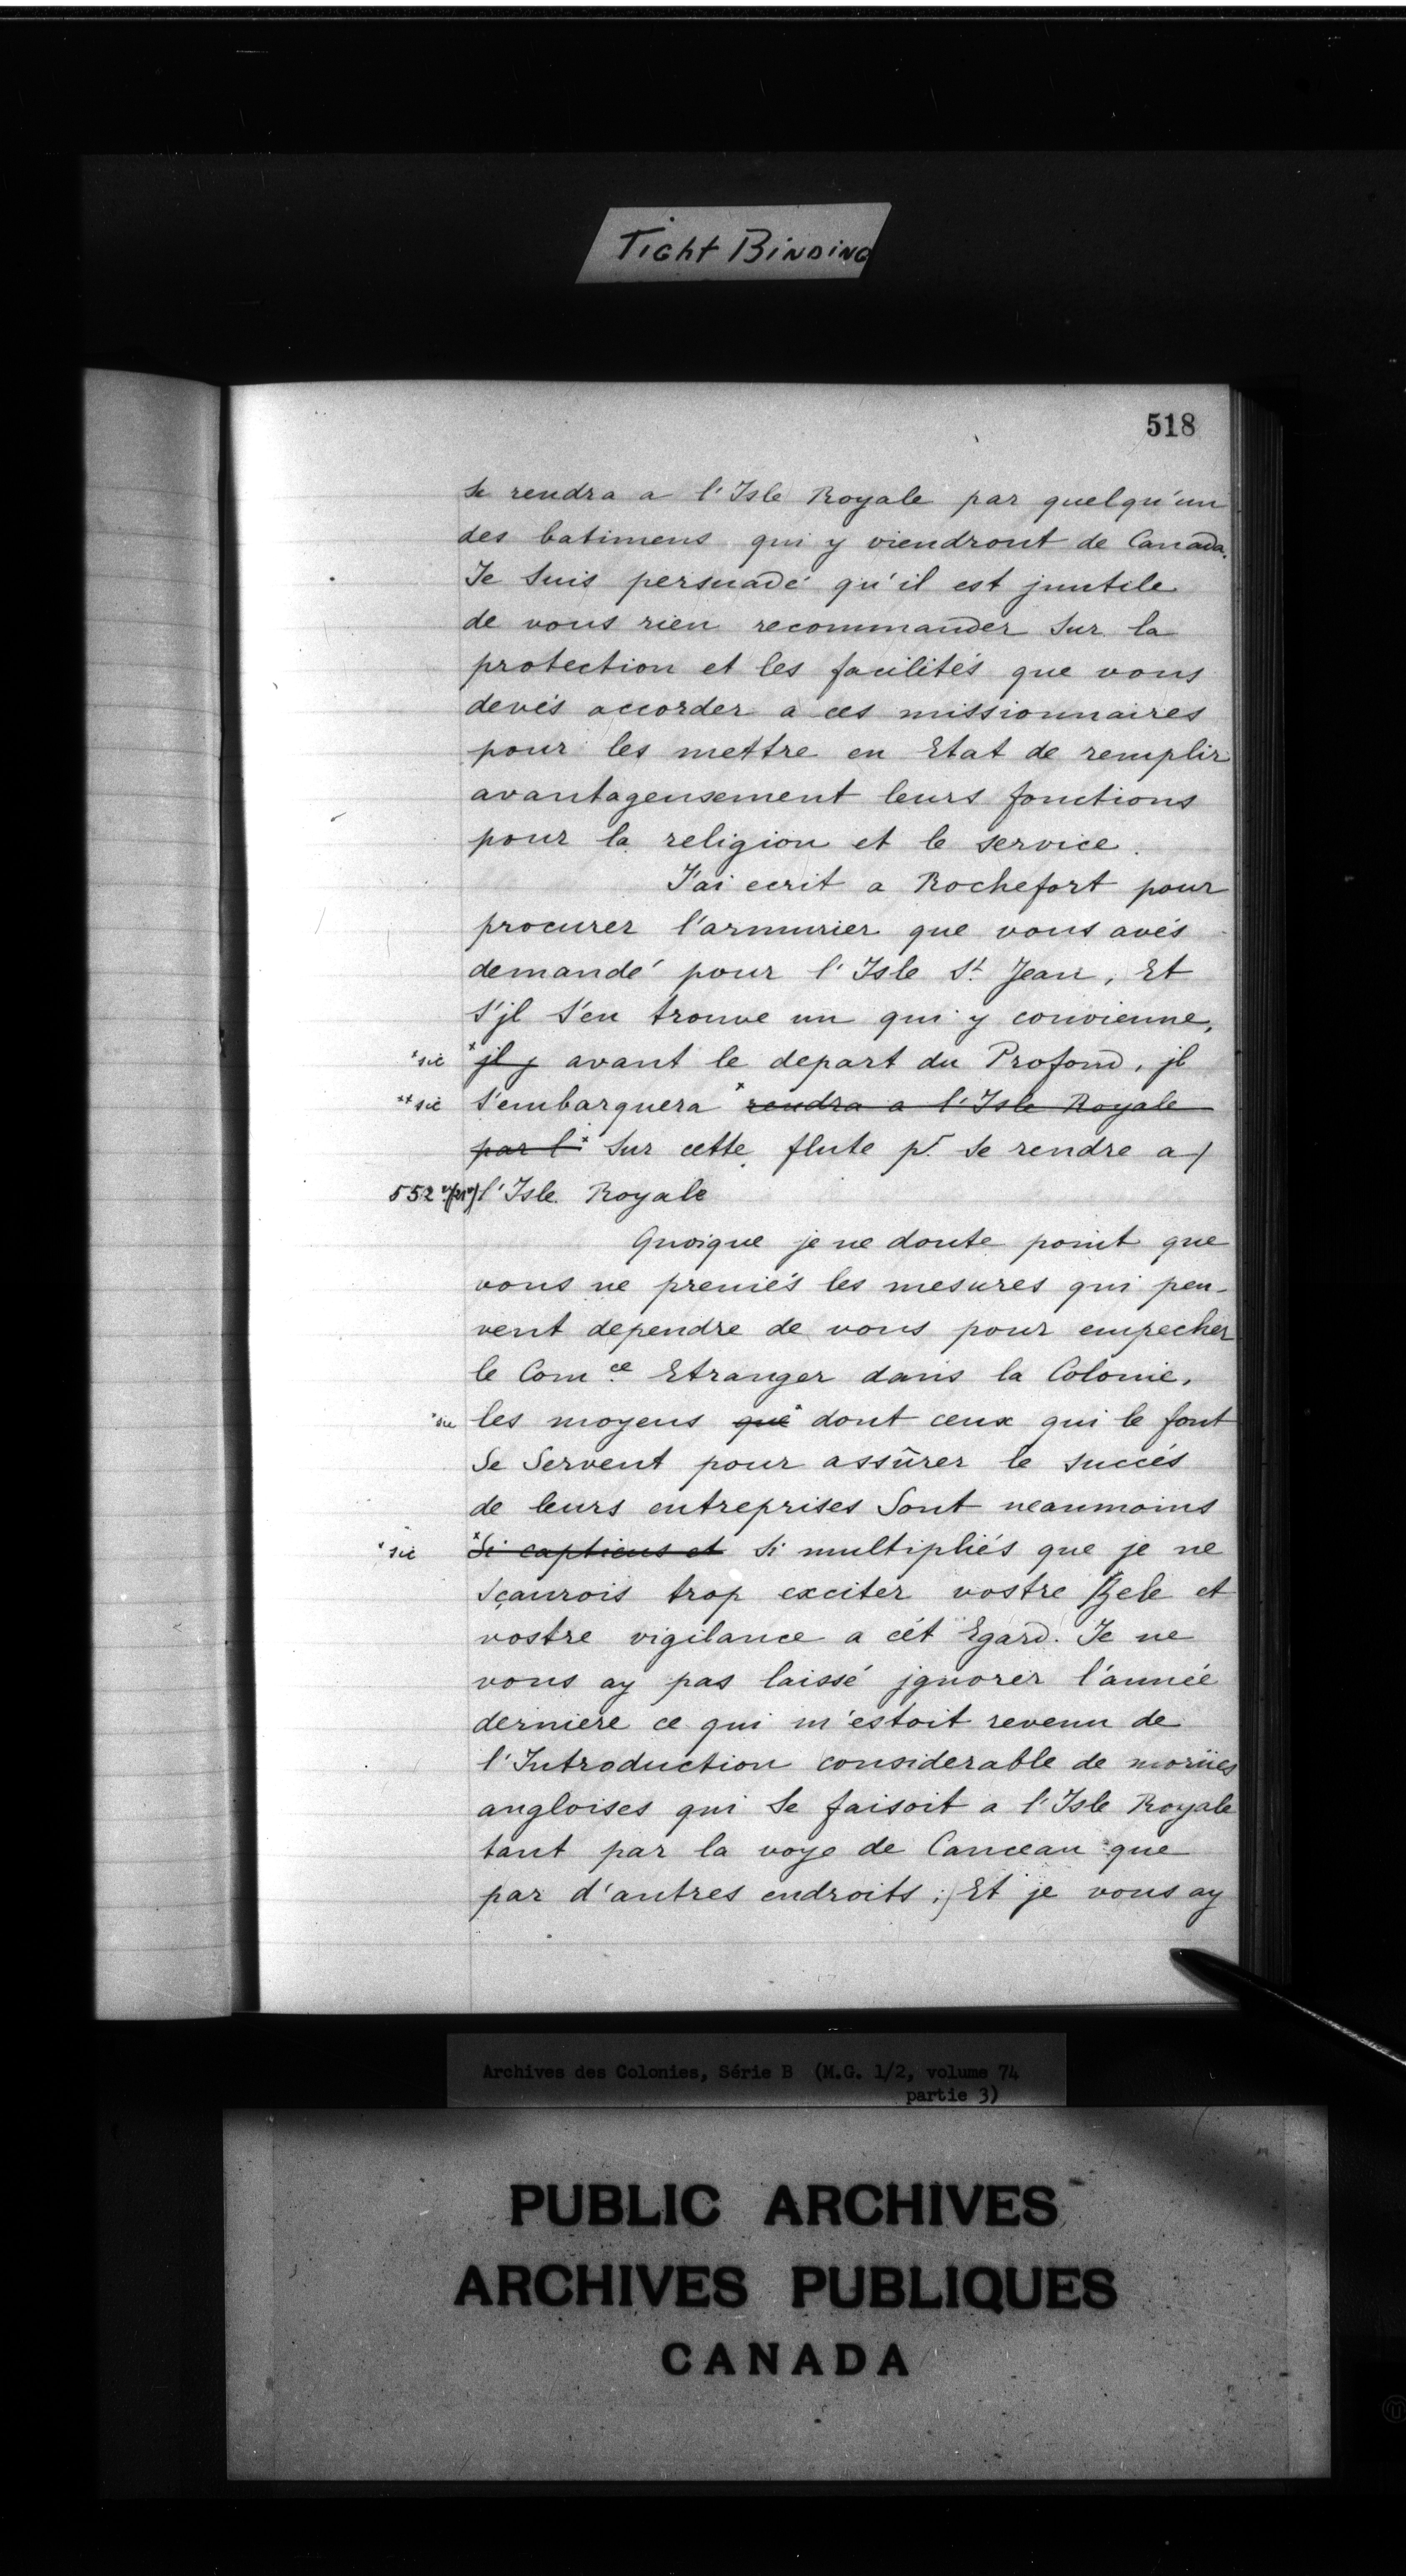 Tight Binding
518
se rendra a l'Isle Royale par quelqu'un
des batimens qui y viendront de Canada.
Je suis persuadé qu'il est jnutile
de vous rien recommander sur la
protection et les facilités que vous
devés accorder a ces missionnaires
pour les mettre en Etat de remplir
avantageusement leurs fonctions
pour la religion et le service.
J'ai ecrit a Rochefort pour
procurer l'armurier que vous avés
demandé pour l'Isle St. Jean, Et
s'jl s'en trouve un qui y convienne,
*sic *jl y avant le depart du Profond, jl
**sic s'embarquera *rendra a l'Isle Royale
par l* sur cette flute pr. se rendre a/
552 l'Isle Royale
Quoique je ne doute point que
vous ne preniés les mesures qui peu-
vent dependre de vous pour empecher
le Comce. Etranger dans la Colonie,
*sic les moyens que* dont ceux qui le font
Se Servent pour assûrer le succés
de leurs entreprises Sont neanmoins
*sic *Si captieus et si multipliés que je ne
sçaurois trop exciter vostre Zele et
vostre vigilance a cét Egard. Je ne
vous ay pas laissé jgnorer l'année
derniere ce qui m'estoit revenu de
l'Introduction considerable de morües
angloises qui se faisoit a l'Isle Royale
tant par la voye de Canceau que
par d'autres endroits; Et je vous ay
Archives des Colonies, Série B (M.G. 1/2, volume 74
partie 3)
PUBLIC ARCHIVES
ARCHIVES PUBLIQUES
CANADA